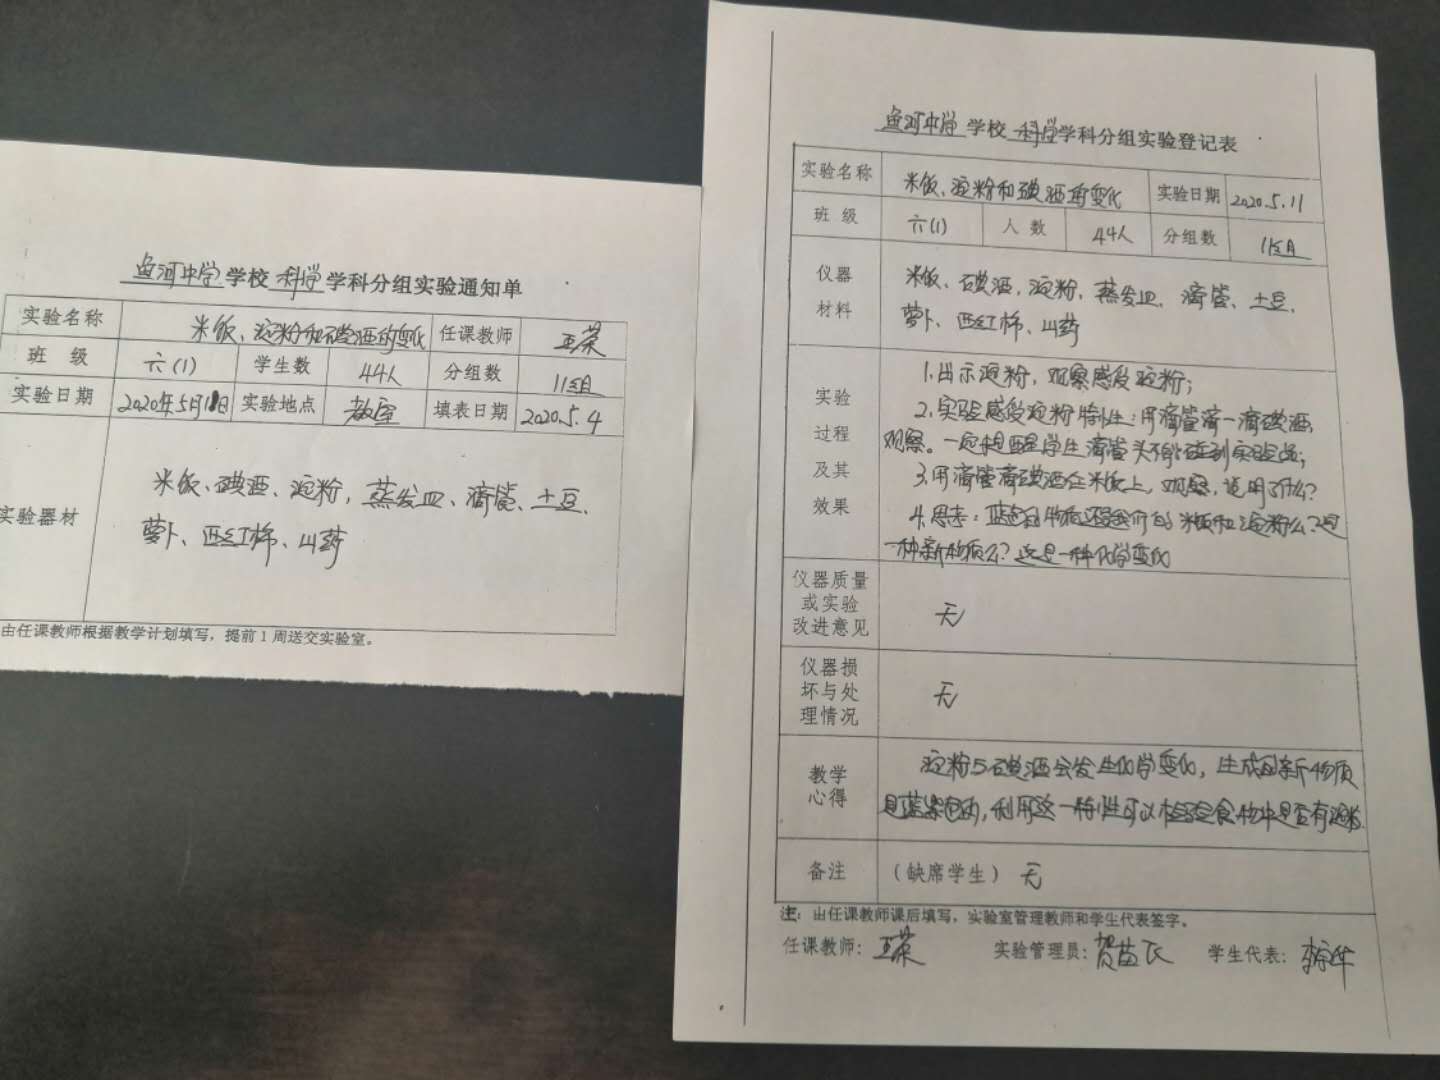 鱼河中学学校科学学科分组实验通知单
实验名称 米饭、淀粉和碘酒的变化 任课教师 王荣
班 级 六(1) 学生数 44人 分组数 11组
实验日期 2020年5月11日 实验地点 教室 填表日期 2020.5.4
实验器材
米饭、碘酒、淀粉、蒸发皿、滴管、土豆、
萝卜、西红柿、山药
由任课教师根据教学计划填写，提前1周送交实验室。
鱼河中学学校科学学科分组实验登记表
实验名称 米饭、淀粉和碘酒的变化 实验日期 2020.5.11
班 级 六(1) 人 数 44人 分组数 11组
仪器
材料
米饭、碘酒、淀粉、蒸发皿、滴管、土豆、
萝卜、西红柿、山药
实验
过程
及其
效果
1.出示淀粉，观察感受淀粉；
2.实验感受淀粉特性：用滴管滴一滴碘酒，
观察。一定提醒学生滴管头不能碰到实验品；
3.用滴管滴碘酒在米饭上，观察，说明了什么？
4.思考：蓝色的物质还是我们的米饭和淀粉么？是
一种新物质么？这是一种化学变化
仪器质量
或实验
改进意见
无
仪器损
坏与处
理情况
无
教学
心得
淀粉与碘酒会发生化学变化，生成的新物质
是蓝紫色的，利用这一特性可以检验食物中是否有淀粉.
备注 （缺席学生） 无
注：由任课教师课后填写，实验室管理教师和学生代表签字。
任课教师：王荣 实验管理员：贺苗飞 学生代表：